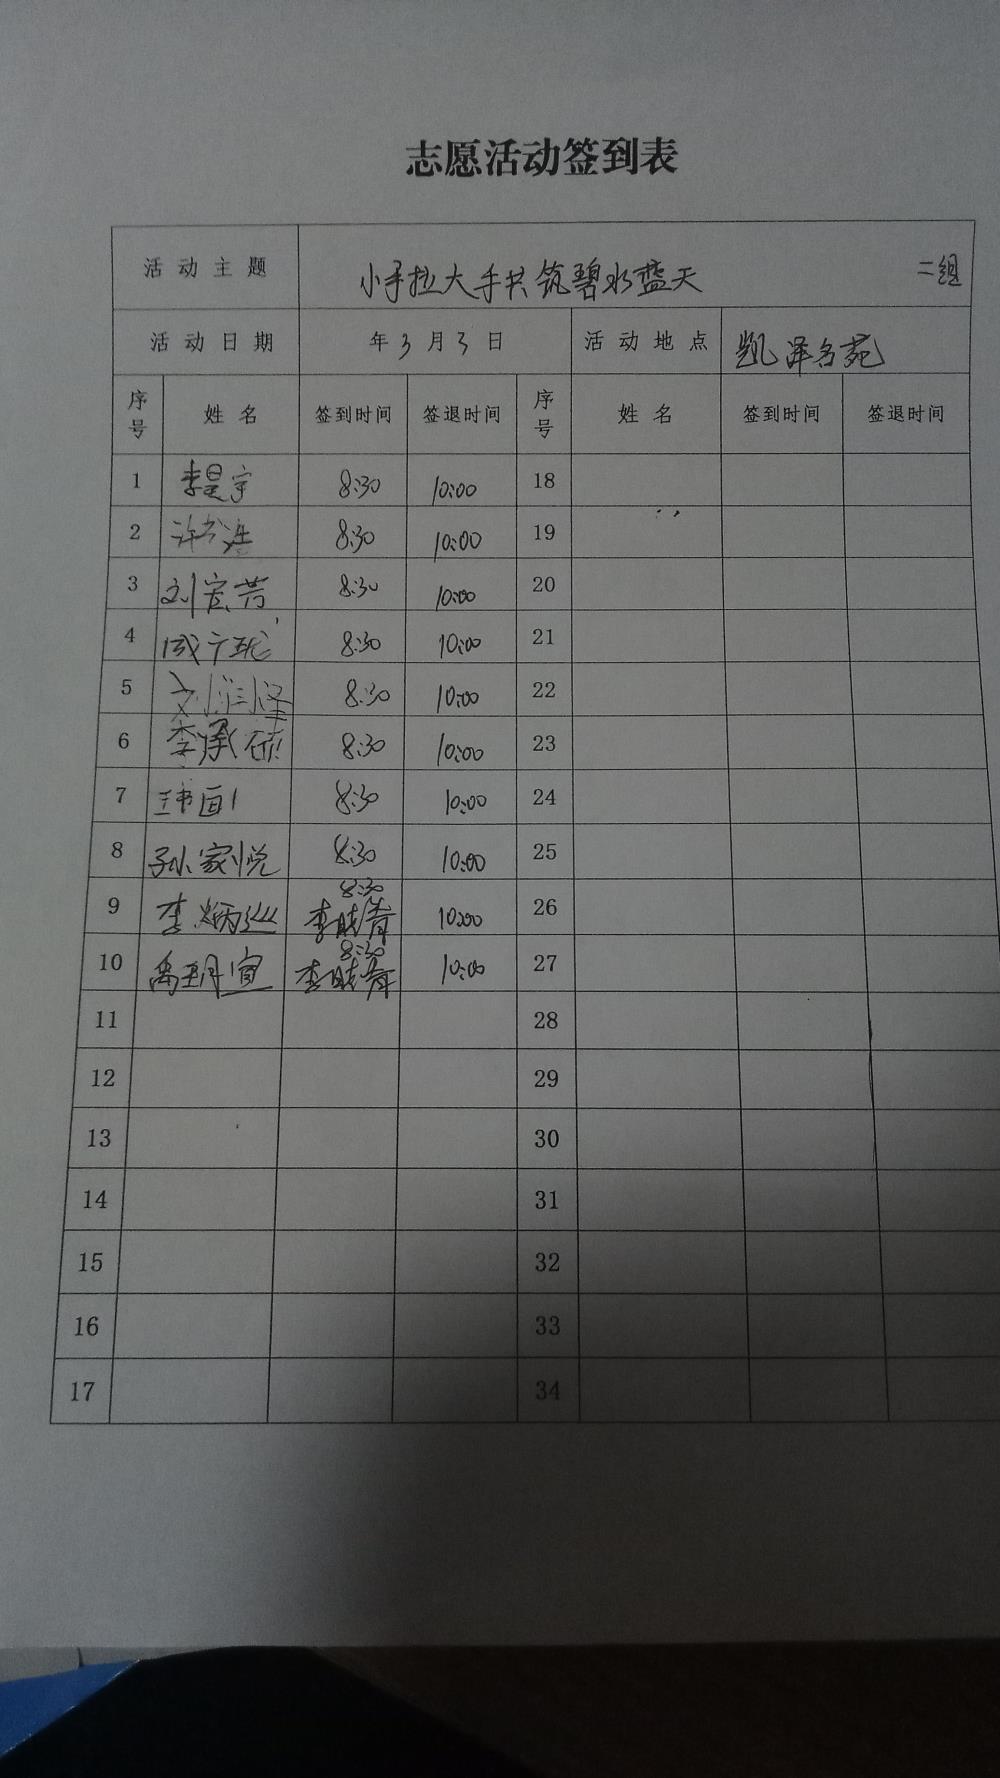 志愿活动签到表
活动主题 小手拉大手共筑碧水蓝天 二组
活动日期 年3月3日 活动地点 凯泽名苑
序号 姓名 签到时间 签退时间 序号 姓名 签到时间 签退时间
1 李昊宇 8:30 10:00 18
2 许 8:30 10:00 19
3 刘宏芳 8:30 10:00 20
4 8:30 10:00 21
5 刘润泽 8:30 10:00 22
6 李承硕 8:30 10:00 23
7 8:30 10:00 24
8 孙家悦 8:30 10:00 25
9 李炳 8:30 李晓菁 10:00 26
10 禹玥宜 8:30 李晓菁 10:00 27
11 28
12 29
13 30
14 31
15 32
16 33
17 34